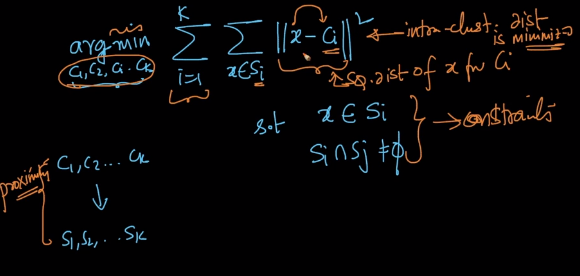 argmin
C₁, C₂, Cᵢ .. Cₖ
K
∑
i=1
∑
x∈Sᵢ
||x - Cᵢ||²
intra-clust. dist
is minimized
sq. dist of x fw Cᵢ
s.t x ∈ Sᵢ
Sᵢ ∩ Sⱼ ≠ ϕ
→ constraints
C₁, C₂ ... Cₖ
proximity
S₁, S₂, .. Sₖ